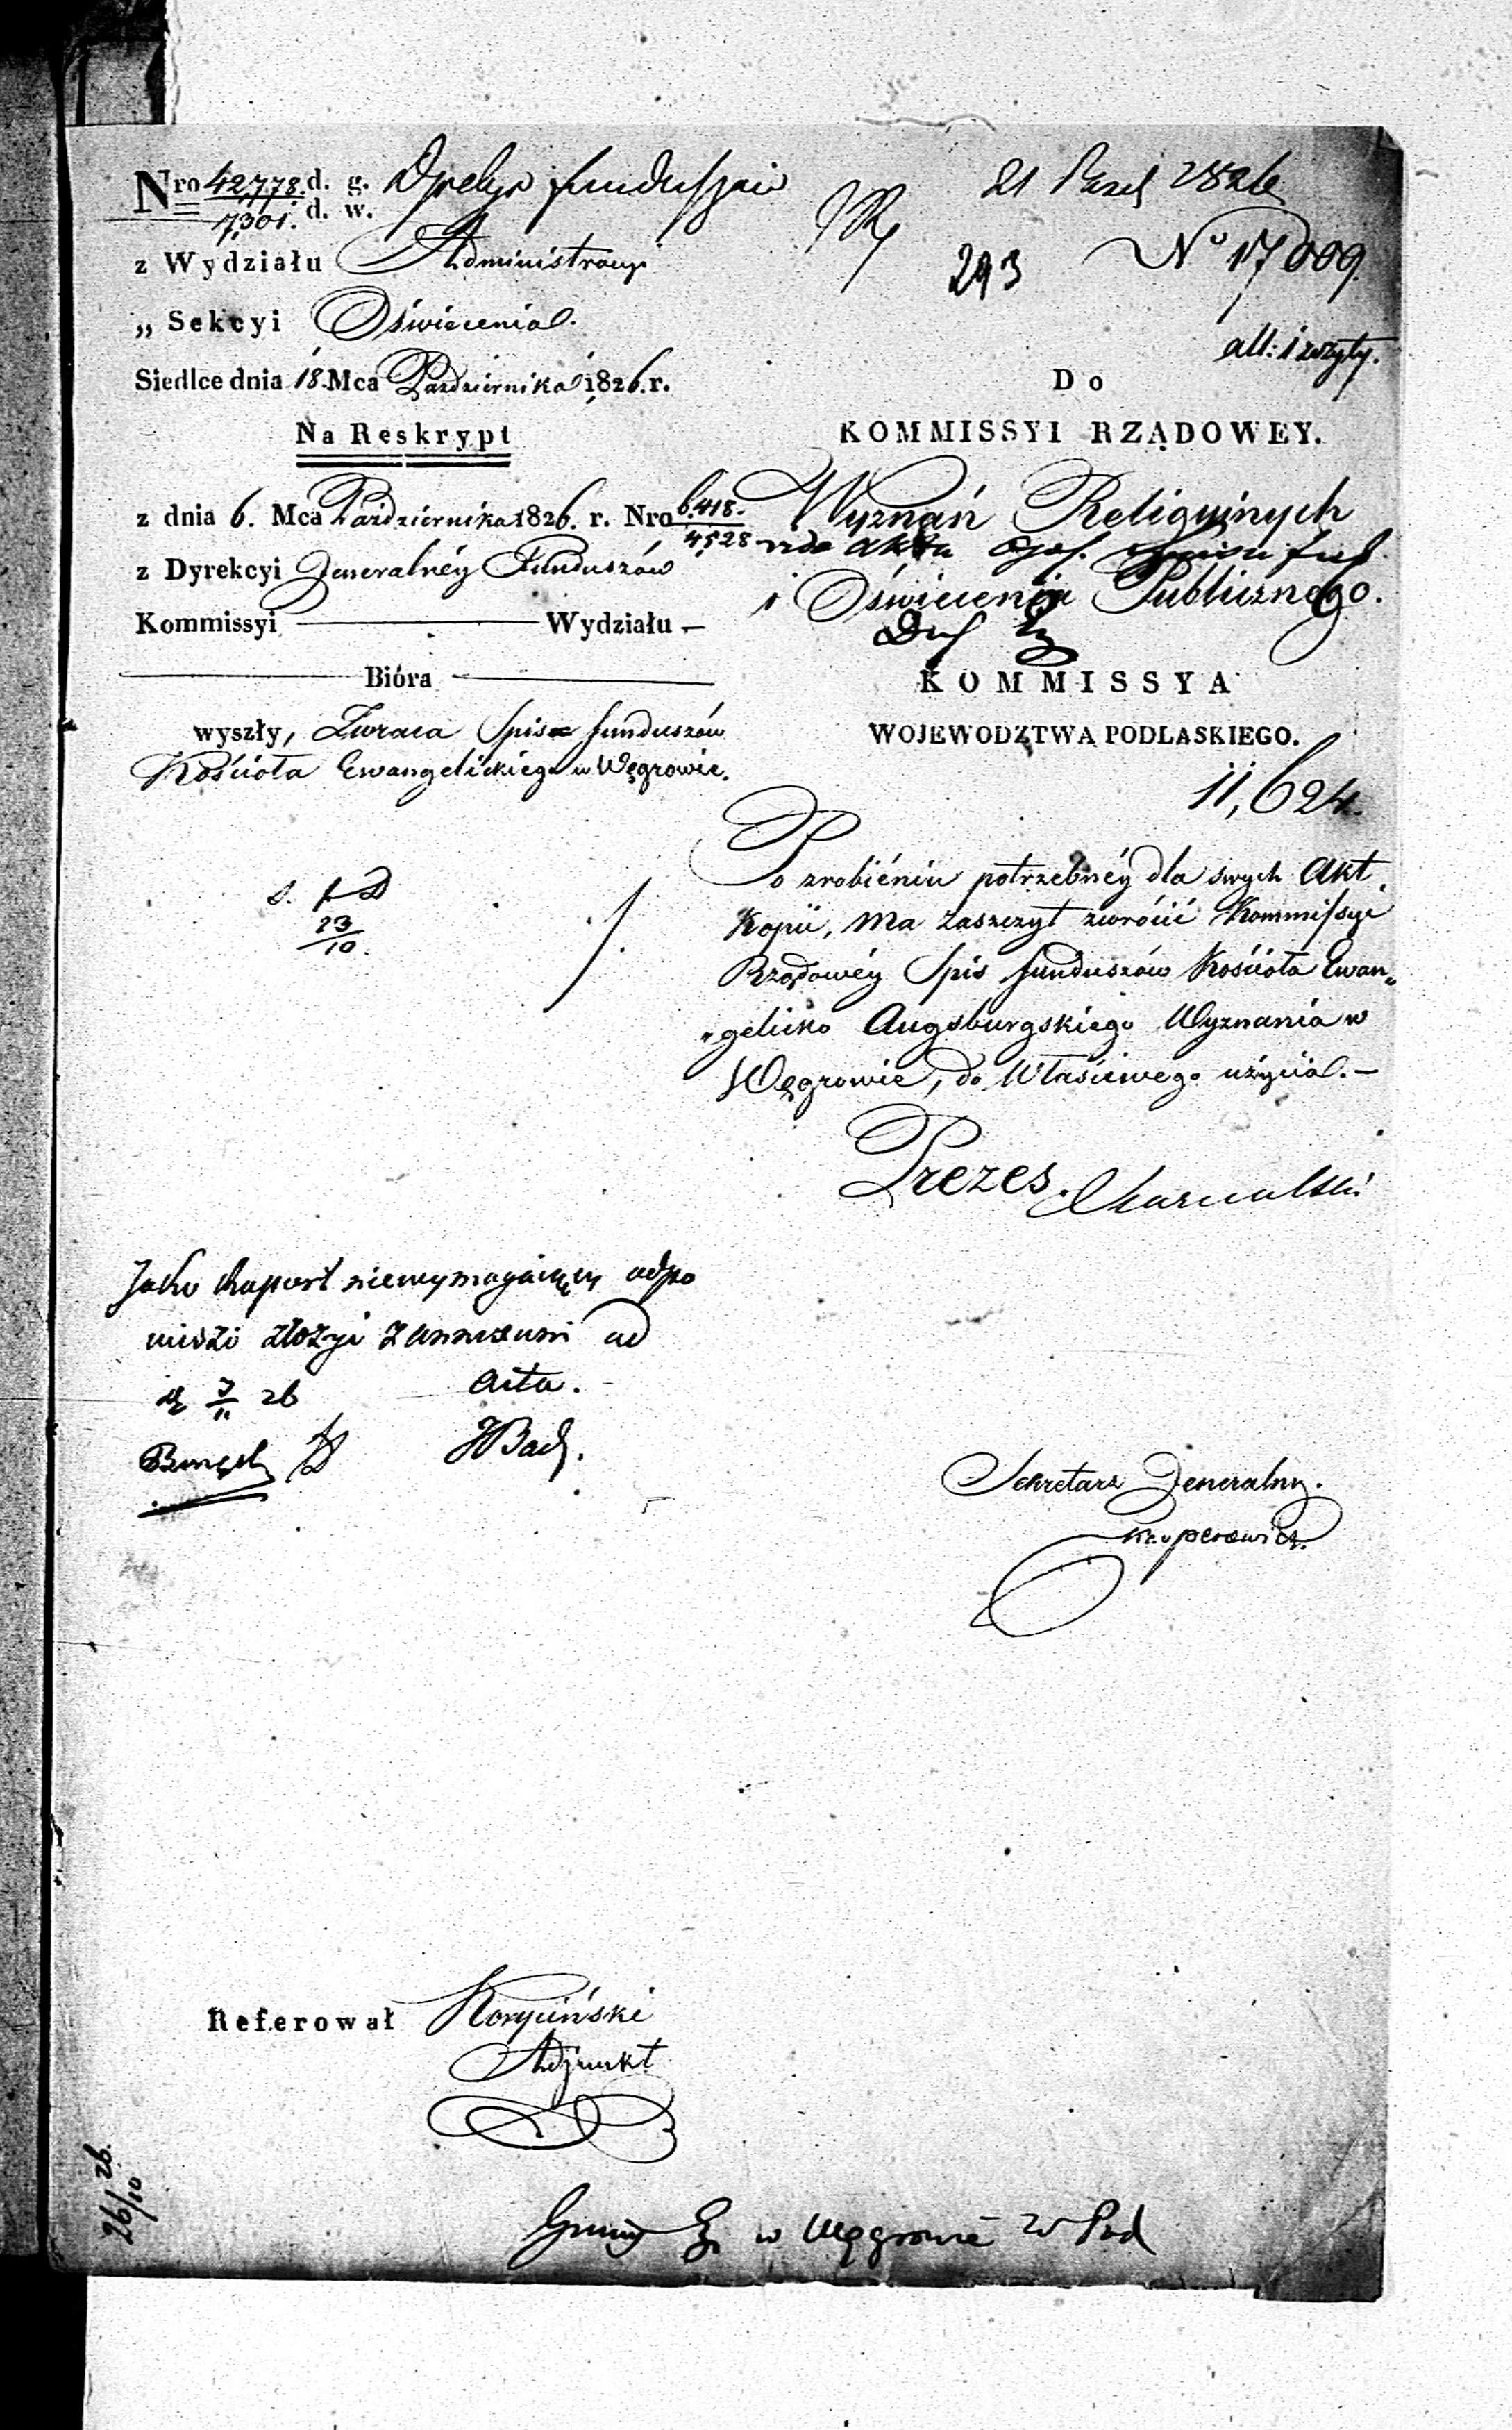 Nro 42,778. d. g.
7,301. d. w.
z Wydziału Administracyi
„ Sekcyi Oświecenia.
Siedlce dnia 18. Mca Października 1826. r.
Na Reskrypt
z dnia 6. Mca Października 1826. r. Nro 6,418.
4528
z Dyrekcyi Generalnéy Funduszów
Kommissyi — Wydziału —
Bióra
wyszły, Zwraca Spis funduszów
Kościoła Ewangelickiego w Węgrowie.
23
10.
21 1826
293
No 17009.
all: 1 zszyty.
Do
KOMMISSYI RZĄDOWEY.
Wyznań Religiynych
i Oświecenia Publicznego.
KOMMISSYA
WOJEWODZTWA PODLASKIEGO.
11,624.
Po zrobiéniu potrzebnéy dla swych Akt
Kopii, ma zaszczyt zwrócić Kommissyi
Rządowéy Spis funduszów Kościoła Ewan„
„gelicko Augsburgskiego Wyznania w
Węgrowie, do właściwego użycia. —
Prezes.
Jako Raport niewymagaiący odpo
wiedzi złożyć z annexami ad
Acta.
26
Sekretarz Generalny.
Referował Koryciński
Adjunkt
26/10 26.
w Węgrowie